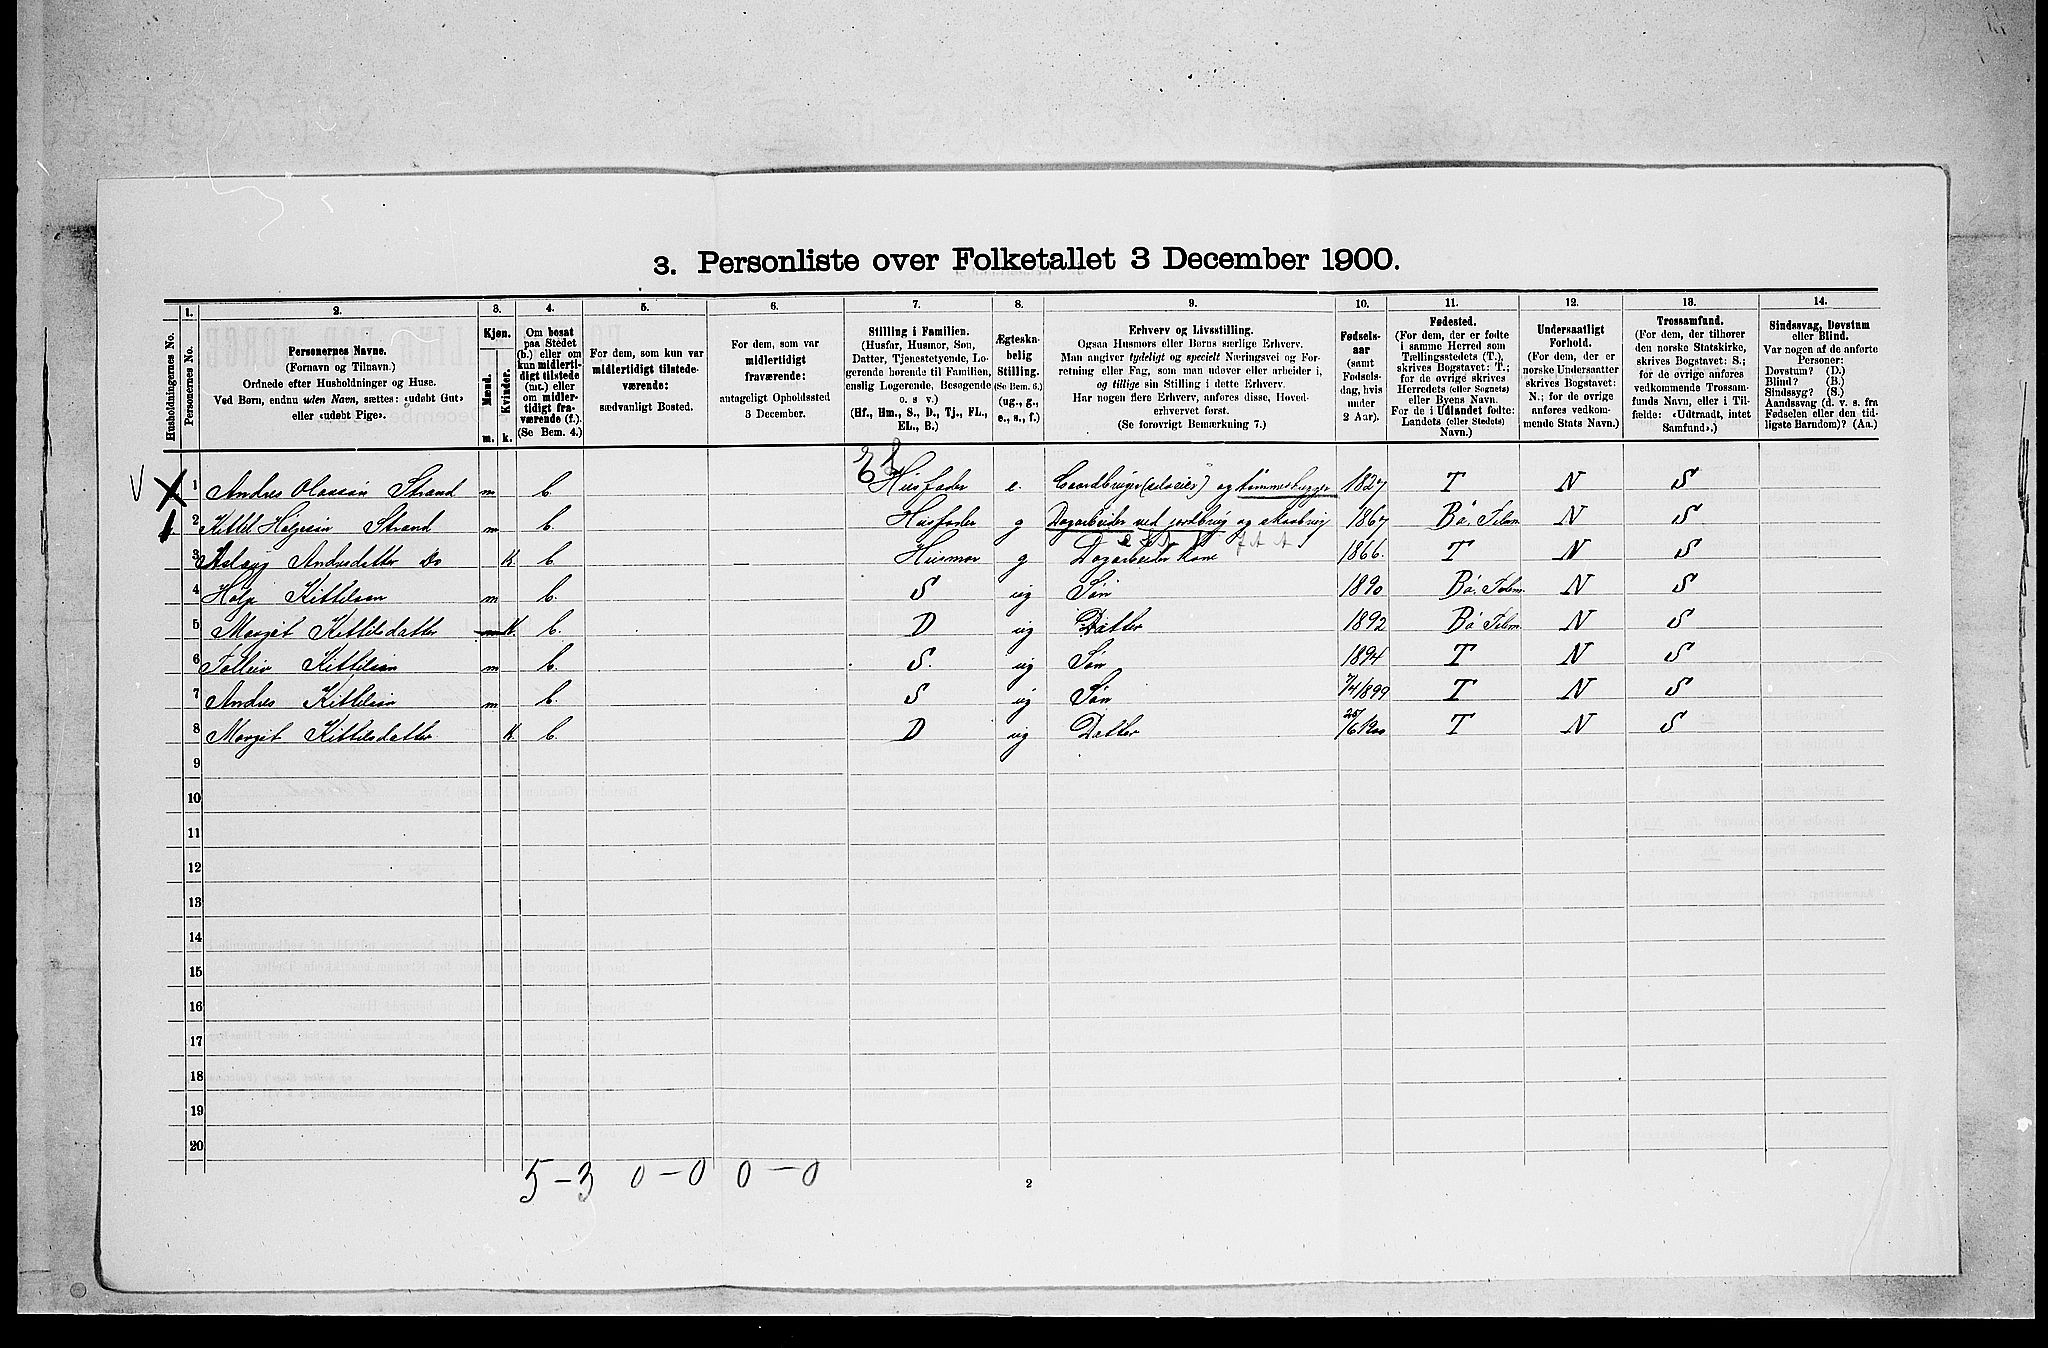 3. Personliste over Folketallet 3 December 1900.
1. 2. 3. 4. 5. 6. 7. 8. 9. 10. 11. 12. 13. 14.
Husholdningernes No.
Personernes No.
Personernes Navne.
(Fornavn og Tilnavn.)
Ordnede efter Husholdninger og Huse.
Ved Børn, endnu uden Navn, sættes: «udøbt Gut»
eller «udøbt Pige».
Kjøn.
Mænd. Kvinder.
m. k.
Om bosat
paa Stedet
(b.) eller om
kun midlerti-
digt tilstede
(mt.) eller
om midler-
tidigt fra-
værende (f.).
(Se Bem. 4.)
For dem, som kun var
midlertidigt tilstede-
værende:
sædvanligt Bosted.
For dem, som var
midlertidigt
fraværende:
antageligt Opholdssted
3 December.
Stilling i Familien.
(Husfar, Husmor, Søn,
Datter, Tjenestetyende, Lo-
gerende hørende til Familien,
enslig Logerende, Besøgende
o. s v.)
(Hf., Hm., S., D., Tj., FL.,
EL., B.)
Ægteska-
belig
Stilling.
(Se Bem. 6.)
(ug., g.,
e., s., f.)
Erhverv og Livsstilling.
Ogsaa Husmors eller Børns særlige Erhverv.
Man angiver tydeligt og specielt Næringsvei og For-
retning eller Fag, som man udøver eller arbeider i,
og tillige sin Stilling i dette Erhverv.
Har nogen flere Erhverv, anføres disse, Hoved-
erhvervet først.
(Se forøvrigt Bemærkning 7.)
Fødsels-
aar
(samt
Fødsels-
dag, hvis
under
2 Aar).
Fødested.
(For dem, der er fødte
i samme Herred som
Tællingsstedets (T.),
skrives Bogstavet: T.;
for de øvrige skrives
Herredets (eller Sognets)
eller Byens Navn.
For de i Udlandet fødte:
Landets (eller Stedets)
Navn.)
Undersaatligt
Forhold.
(For dem, der er
norske Undersaatter
skrives Bogstavet:
N.; for de øvrige
anføres vedkom-
mende Stats Navn.)
Trossamfund.
(For dem, der tilhører
den norske Statskirke,
skrives Bogstavet: S.;
for de øvrige anføres
vedkommende Trossam-
funds Navn, eller i Til-
fælde: «Udtraadt, intet
Samfund».)
Sindssvag, Døvstum
eller Blind.
Var nogen af de anførte
Personer:
Døvstum? (D.)
Blind? (B.)
Sindssyg? (S.)
Aandssvag (d. v. s. fra
Fødselen eller den tid-
ligste Barndom)? (Aa.)
El
V X 1 Andres Olassøn Strand m b. Husfader e. Gaardbruger (selveier) og tømmerhugger 1827 T N S
1. 2 Kittil Holgessøn Strand m b. Husfader g Dagarbeider ved jordbrug og skovbrug 1867 Bø. Telm N S
3 Aslaug Andresdatter Do K b Husmor g Dagarbeider kone 1866. T N S
4 Holge Kittilsen m b. S ug Søn 1890 Bø. Telem. N S
5 Margit Kittilsdatter m K. b. D ug Datter 1892 Bø Telem N S
6 Tolleiv Kittilsøn m b. S. ug Søn 1894 T N S
7 Andres Kittilsøn m b. S ug Søn 7/4 1899 T N S
8 Margit Kittilsdatter K. b. D ug Datter 25/6 1900 T N S
9
10
11
12
13
14
15
16
17
18
19
20
5 – 3 0 – 0 0 – 0
2